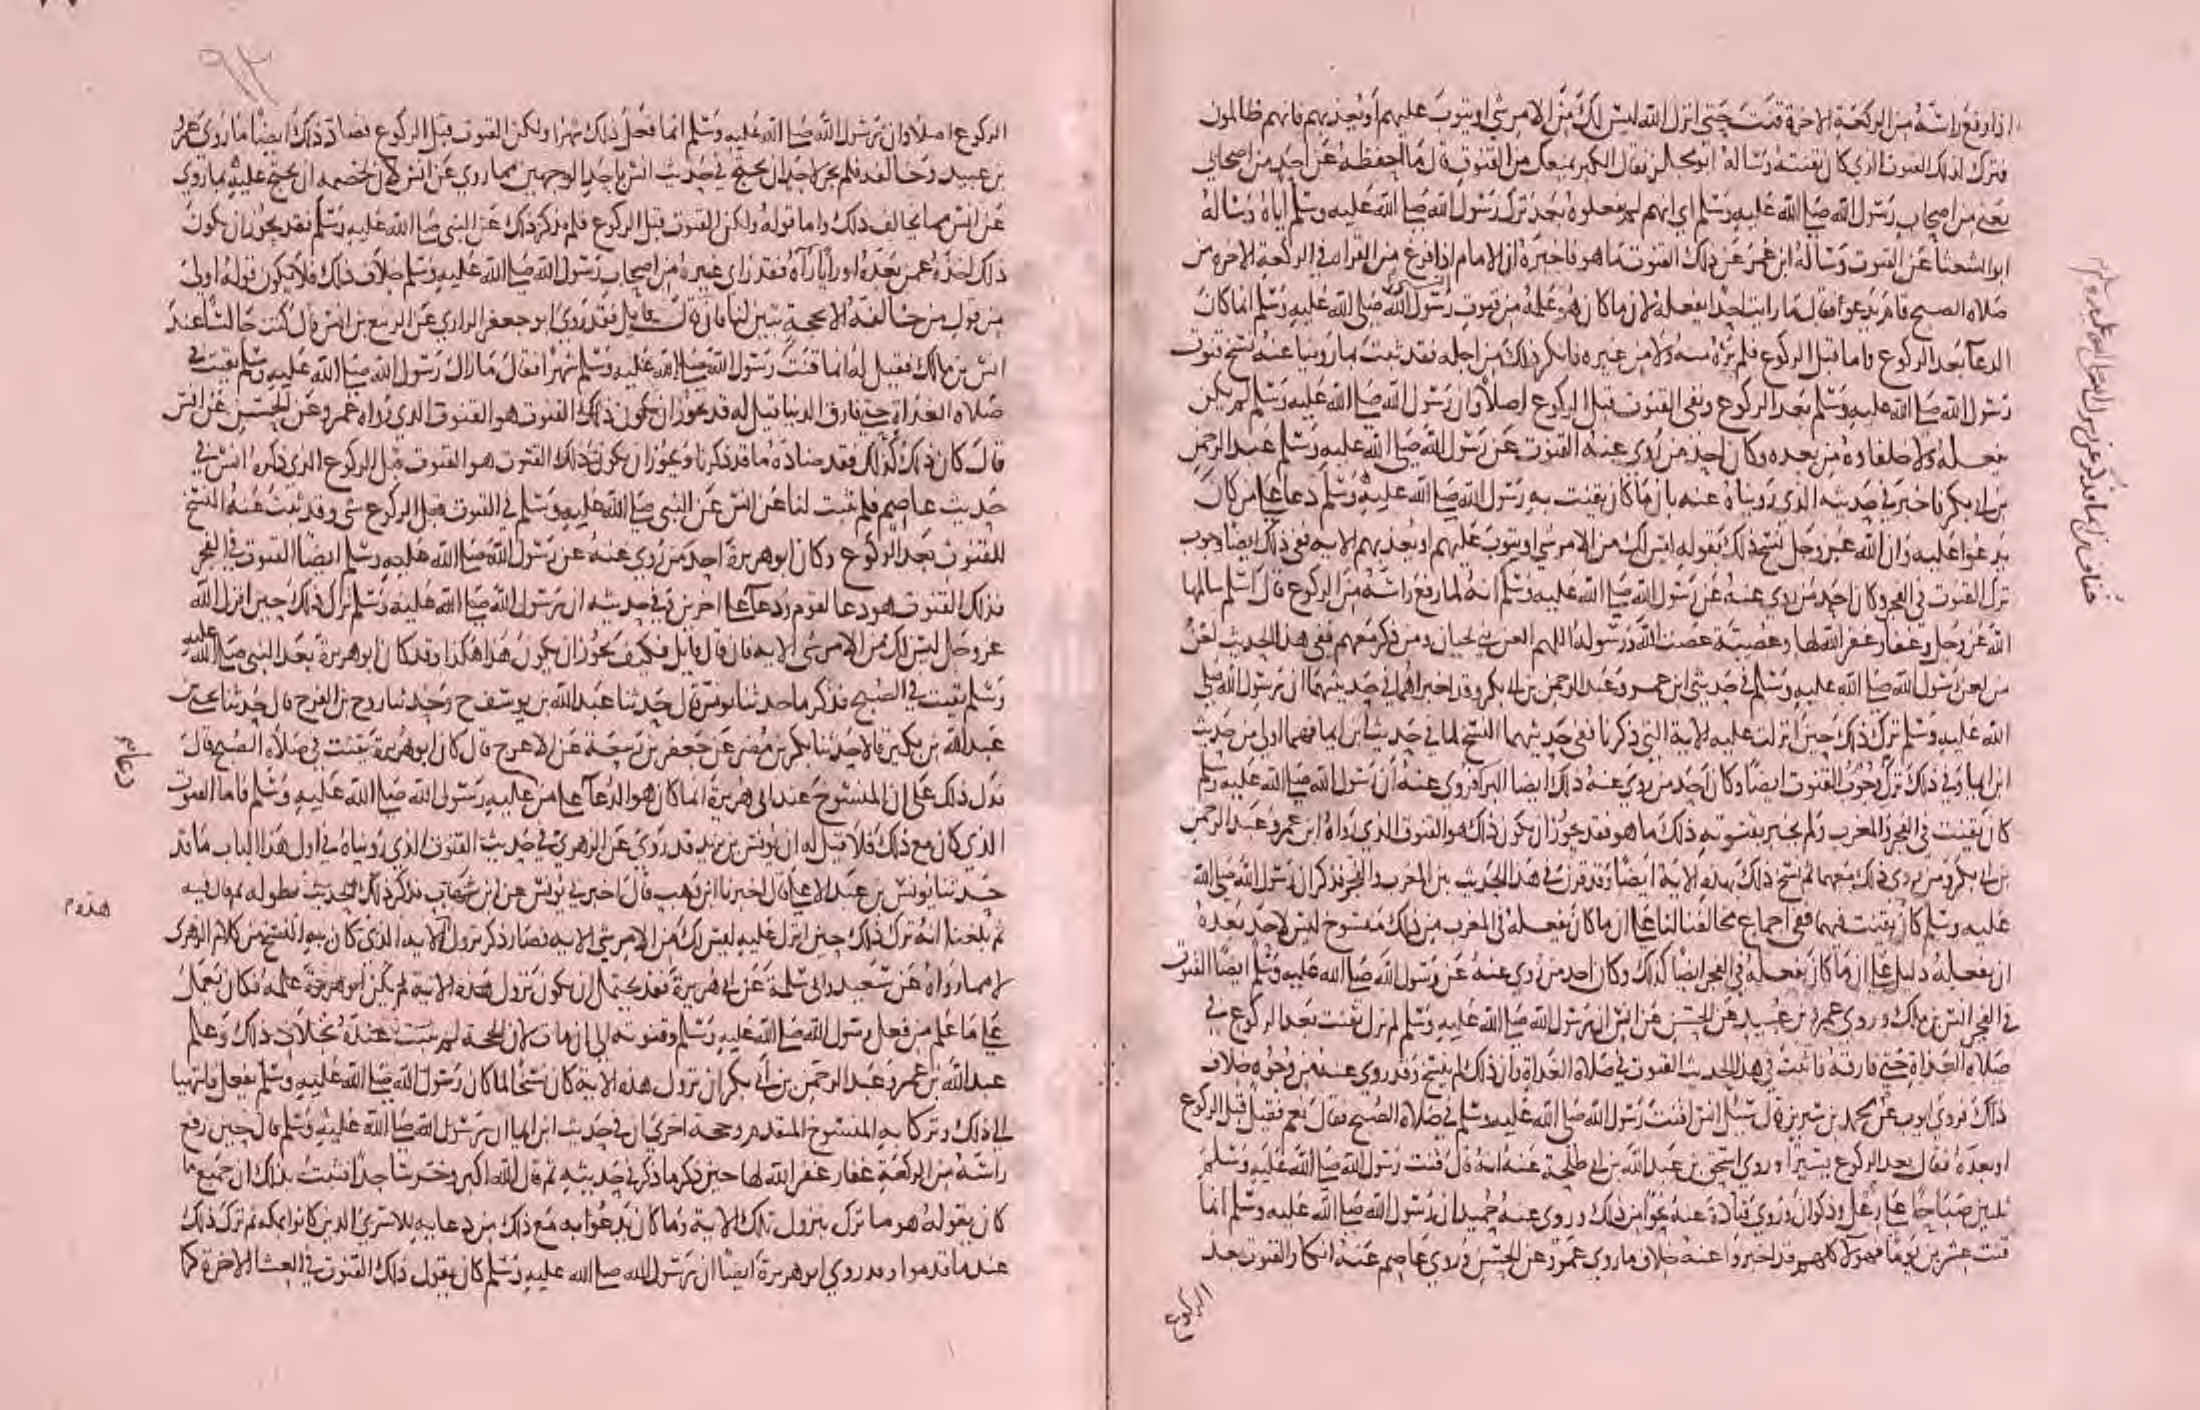 اذا رفع راسه من الركعة الاخرة قنت حتى انزل الله ليس لك من الامر شي او يتوب عليهم او يعذبهم فانهم ظالمون
فترك لذلك القنوت الذي كان يقنته وساله ابو مجلز فقال الكبر يمنعك من القنوت قال ما احفظه عن احد من اصحابي
يعني من اصحاب رسول الله صلى الله عليه وسلم اي انهم لم يفعلوه بعد ترك رسول الله صلى الله عليه وسلم اياه وساله
ابو الشعثا عن القنوت وساله ابن عمر عن ذلك القنوت ما هو فاخبره ان الامام اذا فرغ من القراة في الركعة الاخرة من
صلاة الصبح قام يدعو فقال ما رايت احدا يفعله لان ما كان هو علمه من قنوت رسول الله صلى الله عليه وسلم انما كان
الدعا بعد الركوع واما قبل الركوع فلم يره منه ولا من غيره فانكر ذلك من اجله فقد ثبت بما روينا عنه نسخ قنوت
رسول الله صلى الله عليه وسلم بعد الركوع ونفى القنوت قبل الركوع اصلا وان رسول الله صلى الله عليه وسلم لم يكن
يفعله ولا خلفاوه من بعده وكان احد من روي عنه القنوت عن رسول الله صلى الله عليه وسلم عبد الرحمن
بن ابي بكر فاخبر في حديثه الذي رويناه عنه بان ما كان يقنت به رسول الله صلى الله عليه وسلم دعا على من كان
يدعوا عليه وان الله عز وجل نسخ ذلك بقوله ليس لك من الامر شي او يتوب عليهم او يعذبهم الاية ففي ذلك ايضا وجوب
ترك القنوت في الفجر وكان احد من روي عنه عن رسول الله صلى الله عليه وسلم انه لما رفع راسه من الركوع قال اسلم سالمها
الله عز وجل وغفار غفر الله لها وعصية عصت الله ورسوله اللهم العن بني لحيان ومن ذكر معهم ففي هذا الحديث لعن
من لعن رسول الله صلى الله عليه وسلم في حديثي ابن عمر وعبد الرحمن بن ابي بكر وقد اخبراهما في حديثهما ان رسول الله صلى
الله عليه وسلم ترك ذلك حين انزلت عليه الاية التي ذكرنا ففي حديثهما النسخ لما في حديث ابن ايما فهما اولى من حديث
ابن ايما وفي ذلك ترك وجوب القنوت ايضا وكان احد من روي عنه ذلك ايضا البرا فروى عنه ان رسول الله صلى الله عليه وسلم
كان يقنت في الفجر والمغرب ولم يخبر بقنوته ذلك ما هو فقد يجوز ان يكون ذلك هو القنوت الذي رواه ابن عمر وعبد الرحمن
بن ابي بكر ومن روى ذلك معهما ثم نسخ ذلك بهذه الاية ايضا وقد قرن في هذا الحديث بين المغرب والفجر فذكر ان رسول الله صلى الله
عليه وسلم كان يقنت فيهما ففي اجماع مخالفنا لنا على ان ما كان يفعله في المغرب من ذلك منسوخ ليس لاحد بعده
ان يفعله دليل على ان ما كان يفعله في الفجر ايضا كذلك وكان احد من روي عنه عن رسول الله صلى الله عليه وسلم ايضا القنوت
في الفجر انس بن مالك وروى عمرو بن عبيد عن الحسن عن انس ان رسول الله صلى الله عليه وسلم لم نزل يقنت بعد الركوع في
صلاة الغداة حتى فارقه فاثبت في هذا الحديث القنوت في صلاة الغداة وان ذلك لم ينسخ وقد روي عنه من وجوه خلاف
ذلك فروى ايوب عن محمد بن سيرين قال سئل انس اقنت رسول الله صلى الله عليه وسلم في صلاة الصبح فقال نعم فقيل قبل الركوع
او بعده فقال بعد الركوع يسيرا وروى اسحق بن عبد الله بن ابي طلحة عنه انه قال قنت رسول الله صلى الله عليه وسلم
ثلثين صباحا على رعل وذكوان وروى قتادة عنه نحوا من ذلك وروى عنه حميد ان رسول الله صلى الله عليه وسلم انما
قنت عشرين يوما فهولا كلهم قد اخبروا عنه خلاف ما روى عمرو عن الحسن وروى عاصم عنه انكار القنوت بعد
الركوع
الركوع اصلا وان رسول الله صلى الله عليه وسلم انما فعل ذلك شهرا ولكن القنوت قبل الركوع فضاد ذلك ايضا ما روى عمرو
بن عبيد وخالفه فلم يجز لاحد ان يحتج في حديث انس باحد الوجهين مما روي عن انس لان لخصمه ان يحتج عليه بما روي
عن انس مما يخالف ذلك واما قوله ولكن القنوت قبل الركوع فلم يذكر ذلك عن النبي صلى الله عليه وسلم فقد يجوز ان يكون
ذلك اخذه عمن بعده او رايا رآه فقد راي غيره من اصحاب رسول الله صلى الله عليه وسلم خلاف ذلك فلا يكون قوله اولى
من قول من خالفه الا بحجة تبين لنا فان قال قايل فقد روى ابو جعفر الرازي عن الربيع بن انس قال كنت جالسا عند
انس بن مالك فقيل له انما قنت رسول الله صلى الله عليه وسلم شهرا فقال ما زال رسول الله صلى الله عليه وسلم يقنت في
صلاة الغداة حتى فارق الدنيا قيل له قد يجوز ان يكون ذلك القنوت هو القنوت الذي رواه عمرو عن الحسن عن انس
فان كان ذلك كذلك فقد ضاده ما قد ذكرنا ويجوز ان يكون ذلك القنوت هو القنوت قبل الركوع الذي ذكره انس في
حديث عاصم فلم يثبت لنا عن انس عن النبي صلى الله عليه وسلم في القنوت قبل الركوع شي وقد ثبت عنه النسخ
للقنوت بعد الركوع وكان ابو هريرة احد من روي عنه عن رسول الله صلى الله عليه وسلم ايضا القنوت في الفجر
فذلك القنوت هو دعا لقوم ودعا على اخرين وفي حديثه ان رسول الله صلى الله عليه وسلم ترك ذلك حين انزل الله
عز وجل ليس لك من الامر شي الاية فان قال قايل فكيف يجوز ان يكون هذا هكذا وقد كان ابو هريرة بعد النبي صلى الله عليه
وسلم يقنت في الصبح فذكر ما حدثنا يونس قال حدثنا عبد الله بن يوسف ح وحدثنا روح بن الفرج قال حدثنا يحيى بن
عبد الله بن بكير قالا حدثنا بكر بن مضر عن جعفر بن ربيعة عن الاعرج قال كان ابو هريرة يقنت في صلاة الصبح قال
فدل ذلك على ان المنسوخ عند ابي هريرة انما كان هو الدعا على من دعا عليه رسول الله صلى الله عليه وسلم فاما القنوت
الذي كان مع ذلك فلا قيل له ان يونس بن يزيد قد روى عن الزهري في حديث القنوت الذي رويناه في اول هذا الباب ما قد
حدثنا يونس بن عبد الاعلى قال اخبرنا ابن وهب قال اخبرني يونس عن ابن شهاب فذكر ذلك الحديث بطوله ثم قال فيه
ثم بلغنا انه ترك ذلك حين انزل عليه ليس لك من الامر شي الاية فصار ذكر نزول الاية الذي كان به النسخ من كلام الزهري
لا مما رواه عن سعيد وابي سلمة عن ابي هريرة فقد يحتمل ان يكون نزول هذه الاية لم يكن ابو هريرة علمه فكان يعمل
على ما علم من فعل رسول الله صلى الله عليه وسلم وقنوته الى ان مات لان الحجة لم تثبت عنده بخلاف ذلك وعلم
عبد الله بن عمر وعبد الرحمن بن ابي بكر ان نزول هذه الاية كان نسخا لما كان رسول الله صلى الله عليه وسلم يفعل فانتهيا
الى ذلك وتركا به المنسوخ المتقدم وحجة اخرى ان في حديث ابن ايما ان رسول الله صلى الله عليه وسلم قال حين رفع
راسه من الركعة غفار غفر الله لها حتى ذكر ما ذكر في حديثه ثم قال الله اكبر وخر ساجدا فثبت بذلك ان جميع ما
كان يقوله هو ما ترك بنزول تلك الاية وما كان يدعوا به مع ذلك من دعايه للاسرى الذين كانوا بمكة ثم ترك ذلك
عندما قدموا وقد روى ابو هريرة ايضا ان رسول الله صلى الله عليه وسلم كان يقول ذلك القنوت في العشا الاخرة كما